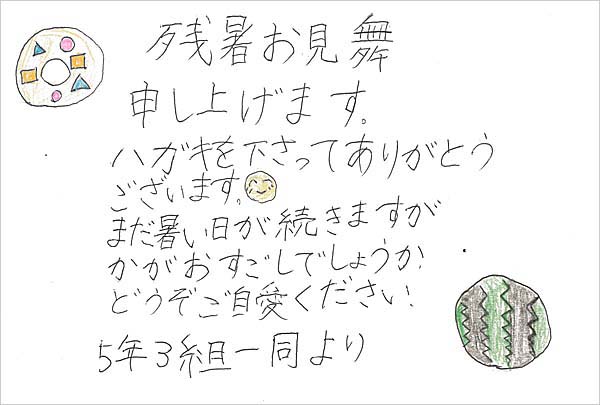 残暑お見舞
申し上げます。
ハガキを下さってありがとう
ございます。
まだ暑い日が続きますが
かがおすごしでしょうか.
どうぞご自愛ください!
5年3組一同より